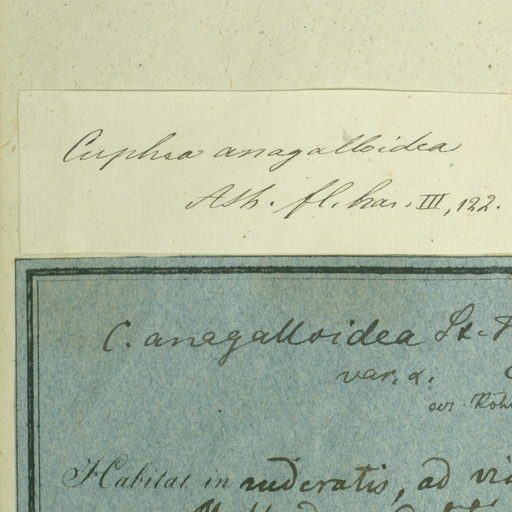 Cuphea anagalloidea
ASH. fl. bras. III, 122.
C. anagalloidea St.
var. α.
scr. Koeh
Habitat in ruderatis, ad vi